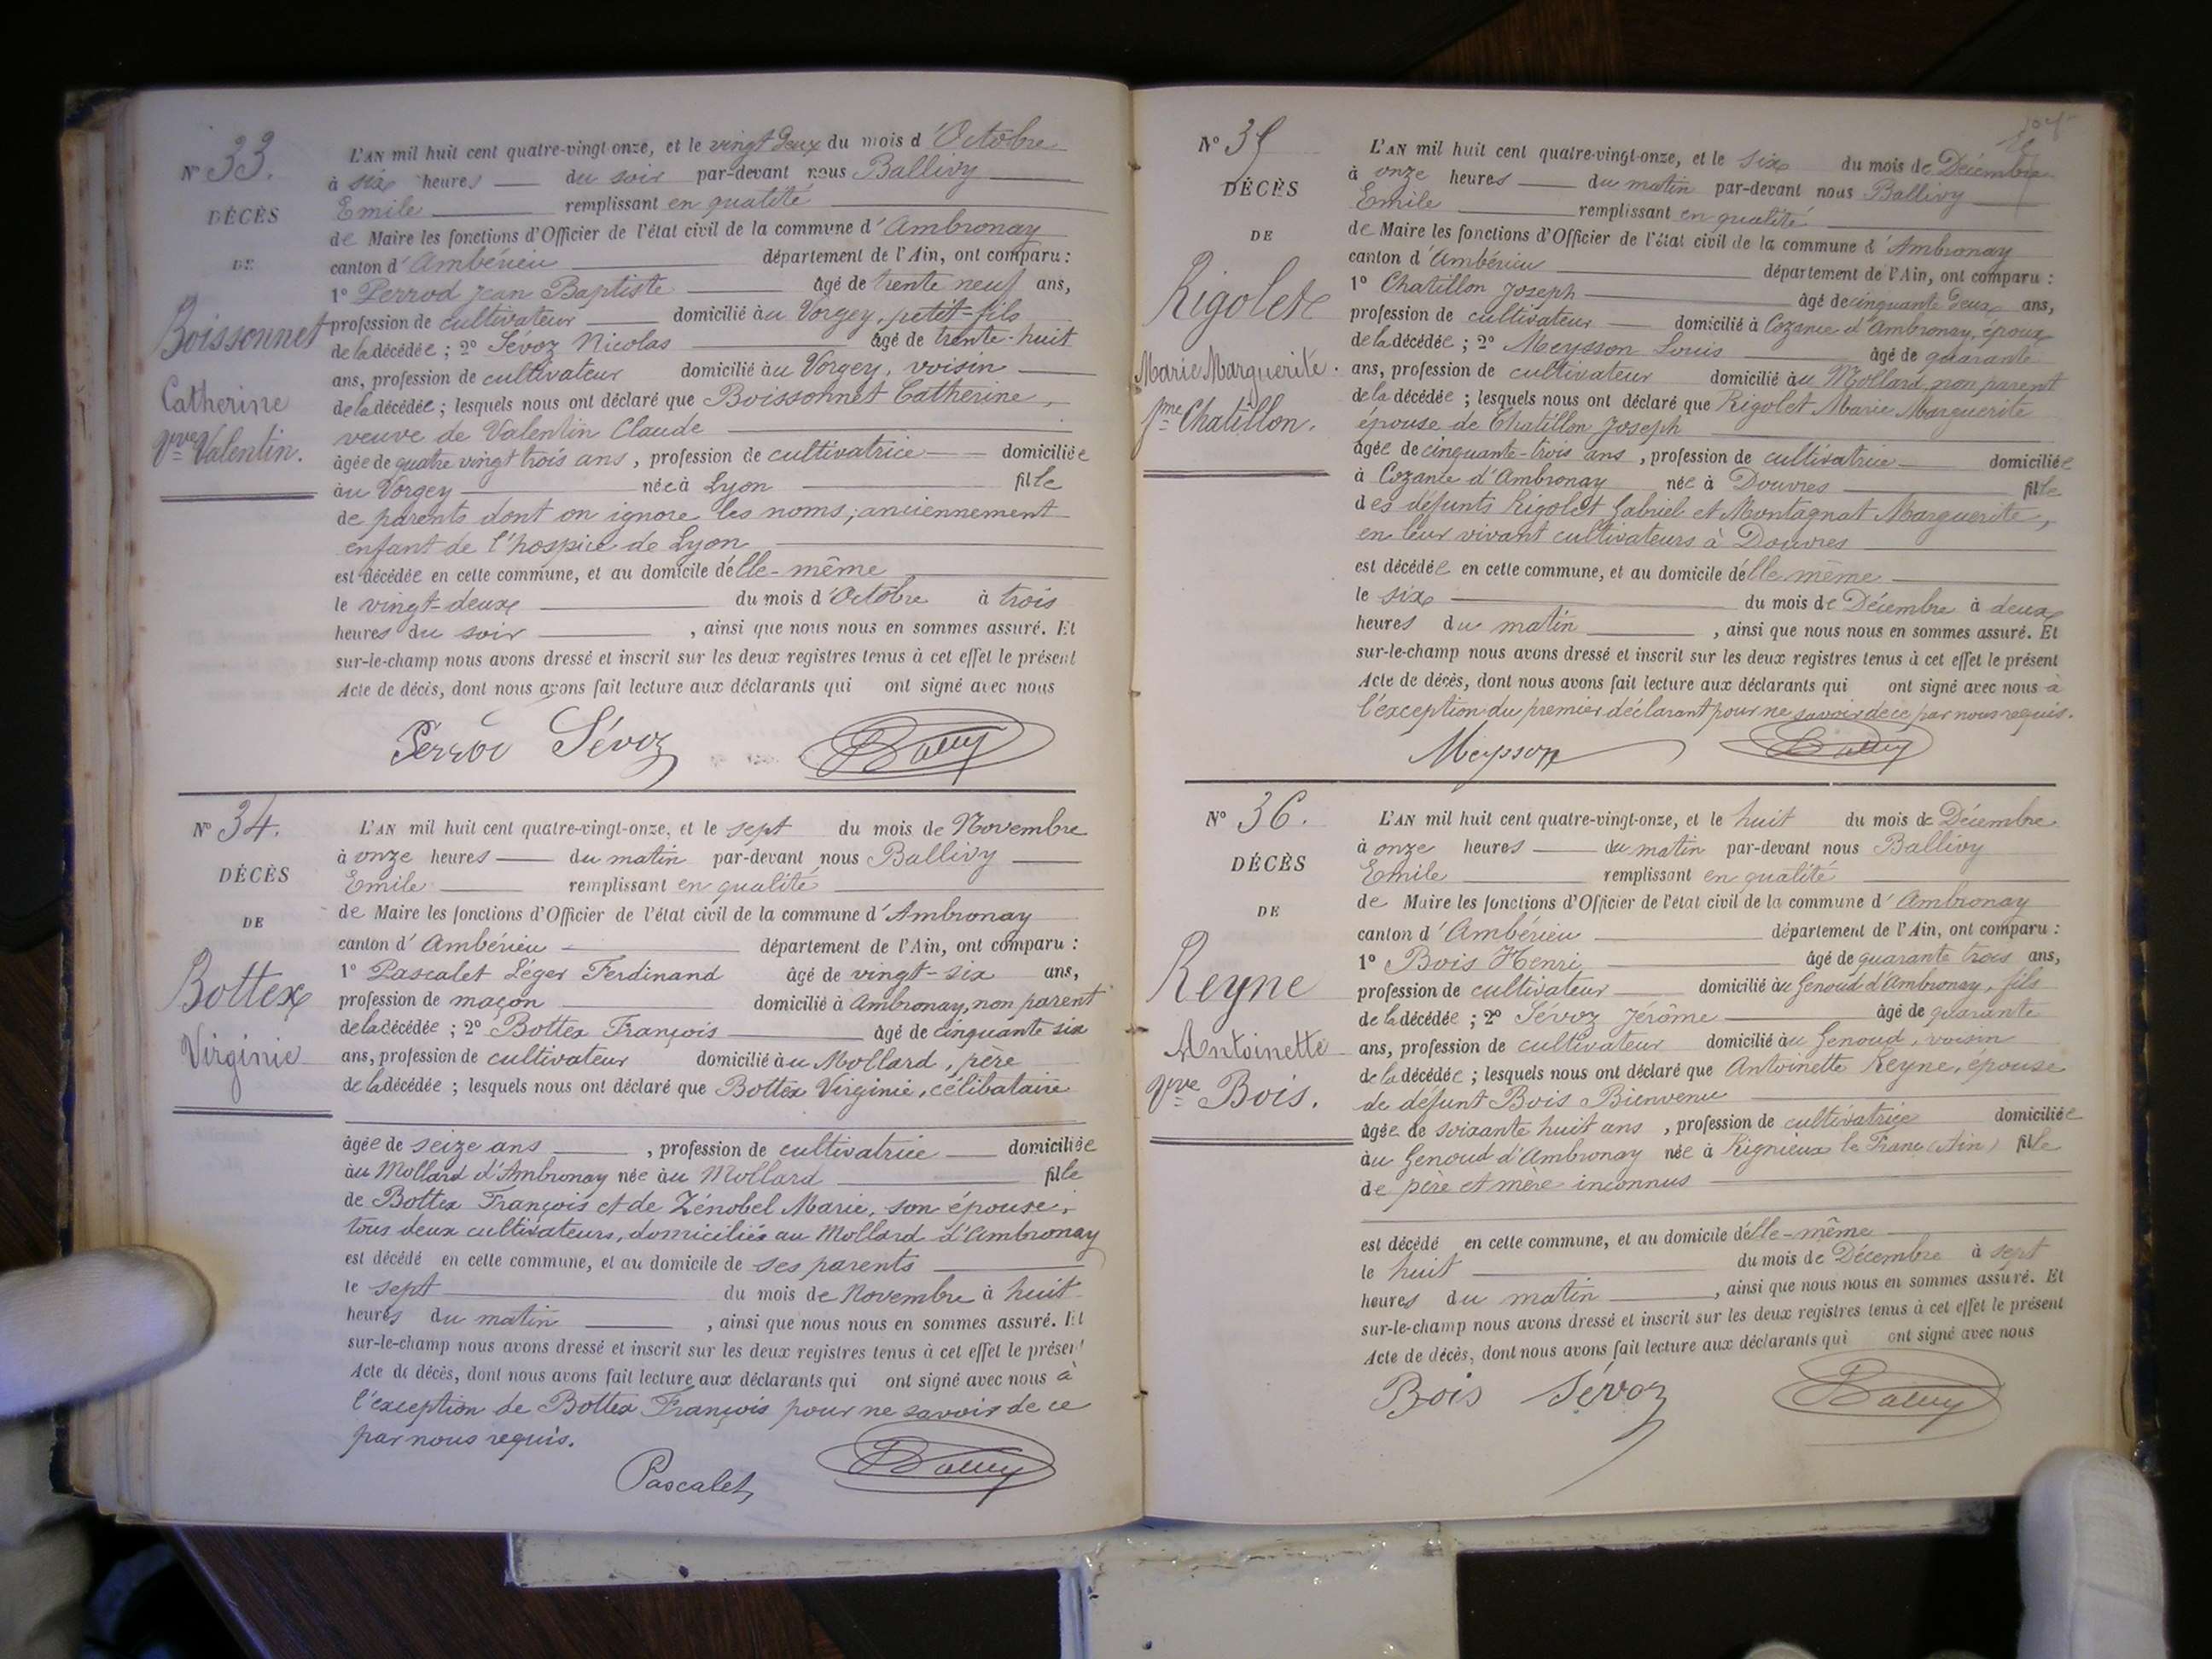 N° 33.
DÉCÈS
DE
Boissonnet
Catherine
Vve Valentin.
L'AN mil huit cent quatre-vingt-onze, et le vingt deux du mois d'Octobre
à six heures du soir par-devant nous Ballivy
Emile remplissant en qualité
de Maire les fonctions d'Officier de l'état civil de la commune d'Ambronay
canton d'Ambérieu département de l'Ain, ont comparu :
1° Perrod Jean Baptiste âgé de trente neuf ans,
profession de cultivateur domicilié au Vorgey, petit-fils
de la décédée ; 2° Sévoz Nicolas âgé de trente-huit
ans, profession de cultivateur domicilié au Vorgey, voisin
de la décédée ; lesquels nous ont déclaré que Boissonnet Catherine,
veuve de Valentin Claude
âgée de quatre vingt trois ans, profession de cultivatrice domiciliée
au Vorgey née à Lyon fille
de parents dont on ignore les noms; anciennement
enfant de l'hospice de Lyon
est décédée en cette commune, et au domicile d'elle-même
le vingt-deux du mois d'Octobre à trois
heures du soir, ainsi que nous nous en sommes assuré. Et
sur-le-champ nous avons dressé et inscrit sur les deux registres tenus à cet effet le présent
Acte de décès, dont nous avons fait lecture aux déclarants qui ont signé avec nous
Perrod Sévoz Ballivy
N° 34.
DÉCÈS
DE
Bottex
Virginie
L'AN mil huit cent quatre-vingt-onze, et le sept du mois de Novembre
à onze heures du matin par-devant nous Ballivy
Emile remplissant en qualité
de Maire les fonctions d'Officier de l'état civil de la commune d'Ambronay
canton d'Ambérieu département de l'Ain, ont comparu :
1° Pascalet Léger Ferdinand âgé de vingt-six ans,
profession de maçon domicilié à Ambronay, non parent
de la décédée ; 2° Bottex François âgé de cinquante six
ans, profession de cultivateur domicilié au Mollard, père
de la décédée ; lesquels nous ont déclaré que Bottex Virginie, célibataire
âgée de seize ans, profession de cultivatrice domiciliée
au Mollard d'Ambronay née au Mollard fille
de Bottex François et de Zénobel Marie, son épouse,
tous deux cultivateurs, domiciliés au Mollard d'Ambronay
est décédé en cette commune, et au domicile de ses parents
le sept du mois de Novembre à huit
heures du matin, ainsi que nous nous en sommes assuré. Et
sur-le-champ nous avons dressé et inscrit sur les deux registres tenus à cet effet le présent
Acte de décès, dont nous avons fait lecture aux déclarants qui ont signé avec nous à
l'exception de Bottex François pour ne savoir de ce
par nous requis.
Pascalet Ballivy
N° 35
DÉCÈS
DE
Rigolet
Marie Marguerite.
fme Chatillon.
L'AN mil huit cent quatre-vingt-onze, et le six du mois de Décembre
à onze heures du matin par-devant nous Ballivy
Emile remplissant en qualité
de Maire les fonctions d'Officier de l'état civil de la commune d'Ambronay
canton d'Ambérieu département de l'Ain, ont comparu :
1° Chatillon Joseph âgé de cinquante deux ans,
profession de cultivateur domicilié à Cozance d'Ambronay, époux
de la décédée ; 2° Meysson Louis âgé de quarante
ans, profession de cultivateur domicilié au Mollard non parent
de la décédée ; lesquels nous ont déclaré que Rigolet Marie Marguerite
épouse de Chatillon Joseph
âgée de cinquante-trois ans, profession de cultivatrice domiciliée
à Cozance d'Ambronay née à Douvres fille
des défunts Rigolet Gabriel et Montagnat Marguerite,
en leur vivant cultivateurs à Douvres
est décédée en cette commune, et au domicile d'elle même
le six du mois de Décembre à deux
heures du matin, ainsi que nous nous en sommes assuré. Et
sur-le-champ nous avons dressé et inscrit sur les deux registres tenus à cet effet le présent
Acte de décès, dont nous avons fait lecture aux déclarants qui ont signé avec nous à
l'exception du premier déclarant pour ne savoir de ce par nous requis.
Meysson Ballivy
N° 36.
DÉCÈS
DE
Reyne
Antoinette
Vve Bois.
L'AN mil huit cent quatre-vingt-onze, et le huit du mois de Décembre
à onze heures du matin par-devant nous Ballivy
Emile remplissant en qualité
de Maire les fonctions d'Officier de l'état civil de la commune d'Ambronay
canton d'Ambérieu département de l'Ain, ont comparu :
1° Bois Henri âgé de quarante trois ans,
profession de cultivateur domicilié au Genoud d'Ambronay, fils
de la décédée ; 2° Sévoz Jérôme âgé de quarante
ans, profession de cultivateur domicilié au Genoud, voisin
de la décédée ; lesquels nous ont déclaré que Antoinette Reyne, épouse
de défunt Bois Bienvenu
âgée de soixante huit ans, profession de cultivatrice domiciliée
au Genoud d'Ambronay née à Rignieux le Franc (Ain) fille
de père et mère inconnus
est décédé en cette commune, et au domicile d'elle-même
le huit du mois de Décembre à sept
heures du matin, ainsi que nous nous en sommes assuré. Et
sur-le-champ nous avons dressé et inscrit sur les deux registres tenus à cet effet le présent
Acte de décès, dont nous avons fait lecture aux déclarants qui ont signé avec nous
Bois Sévoz Ballivy